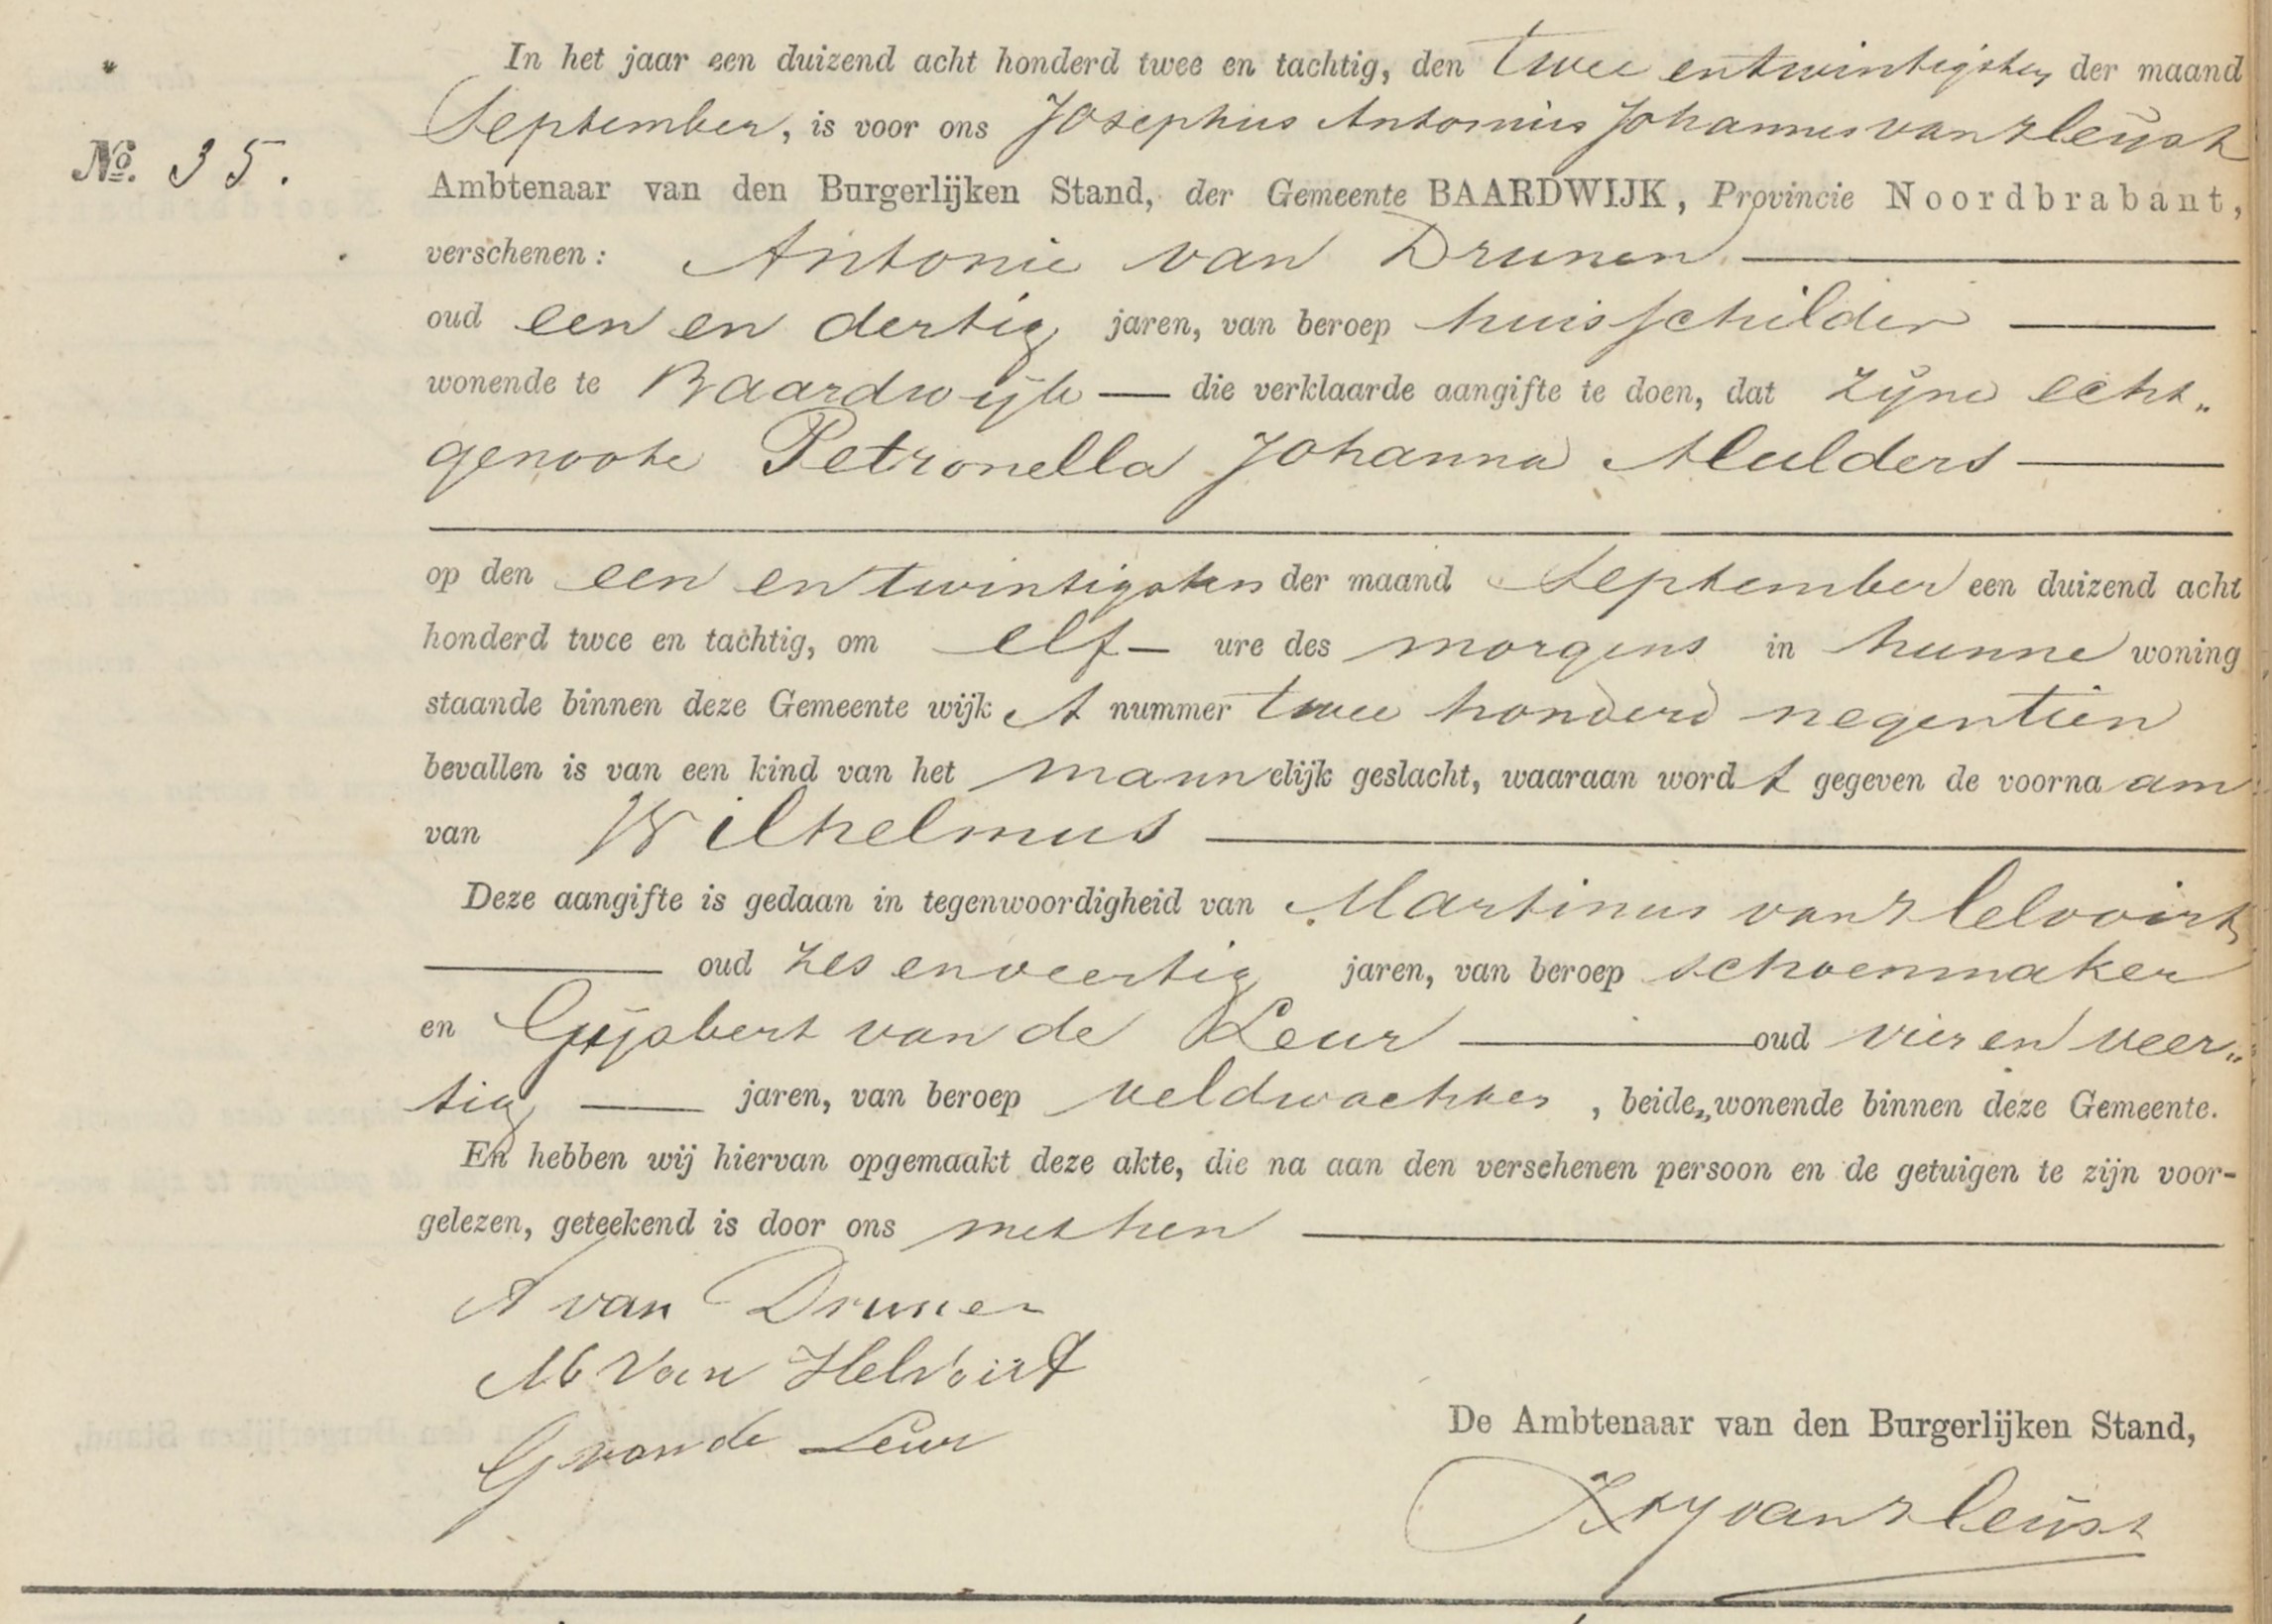 In het jaar een duizend acht honderd twee en tachtig, den twee entwintigsten der maand
September, is voor ons Josephus Antonius Johannes van Heijst
No. 35.
Ambtenaar van den Burgerlijken Stand, der Gemeente BAARDWIJK, Provincie Noordbrabant,
verschenen: Antonie van Drunen
oud een en dertig jaren, van beroep huisschilder
wonende te Baardwijk — die verklaarde aangifte te doen, dat zijne echt„
genoote Petronella Johanna Mulders
op den een en twintigsten der maand September een duizend acht
honderd twee en tachtig, om elf ure des morgens in hunne woning
staande binnen deze Gemeente wijk A nummer twee honderd negentien
bevallen is van een kind van het mannelijk geslacht, waaraan wordt gegeven de voornaam
van Wilhelmus
Deze aangifte is gedaan in tegenwoordigheid van Martinus van Helvoirt
oud zes en veertig jaren, van beroep schoenmaker
en Gijsbert van de Leur oud vier en veer„
tig jaren, van beroep veldwachter, beide„ wonende binnen deze Gemeente.
En hebben wij hiervan opgemaakt deze akte, die na aan den verschenen persoon en de getuigen te zijn voor-
gelezen, geteekend is door ons met hen
A van Drunen
M Van Helvoirt
G van de Leur
De Ambtenaar van den Burgerlijken Stand,
van Heijst